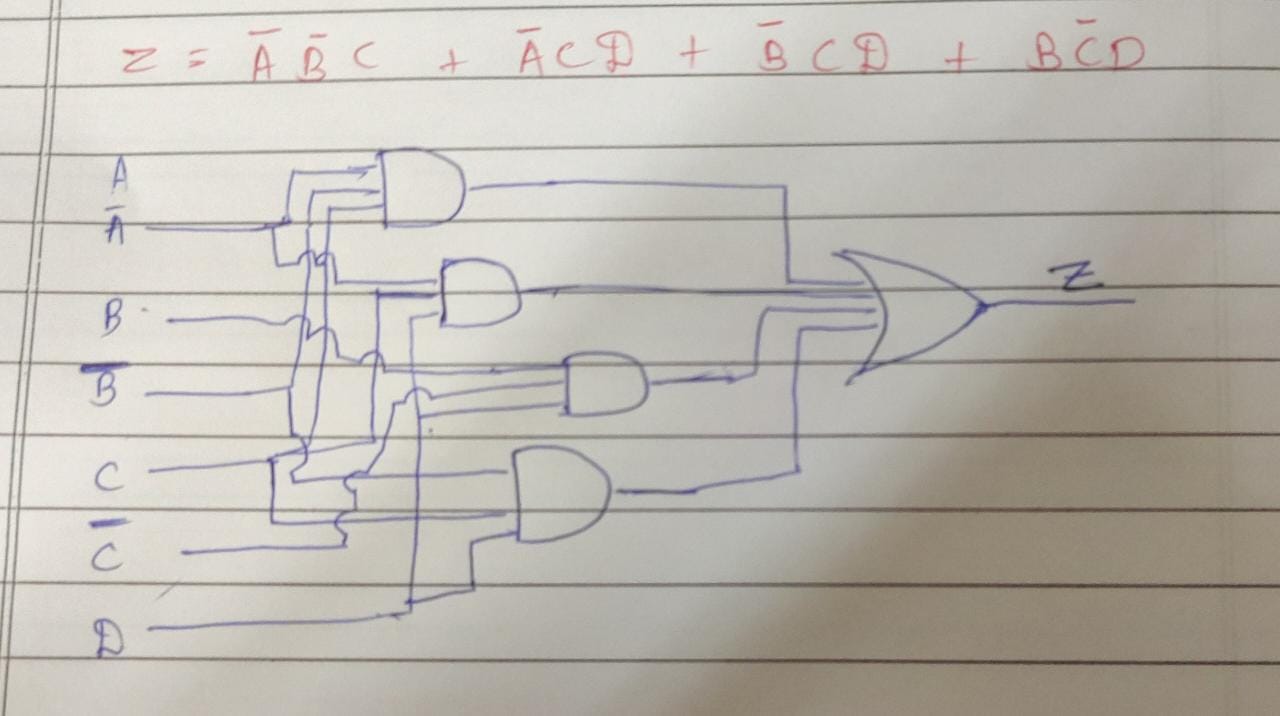 z = A̅ B̅ C + A̅ C D + B̅ C D + B C̅ D
A
A̅
B
Z
B̅
C
C̅
D